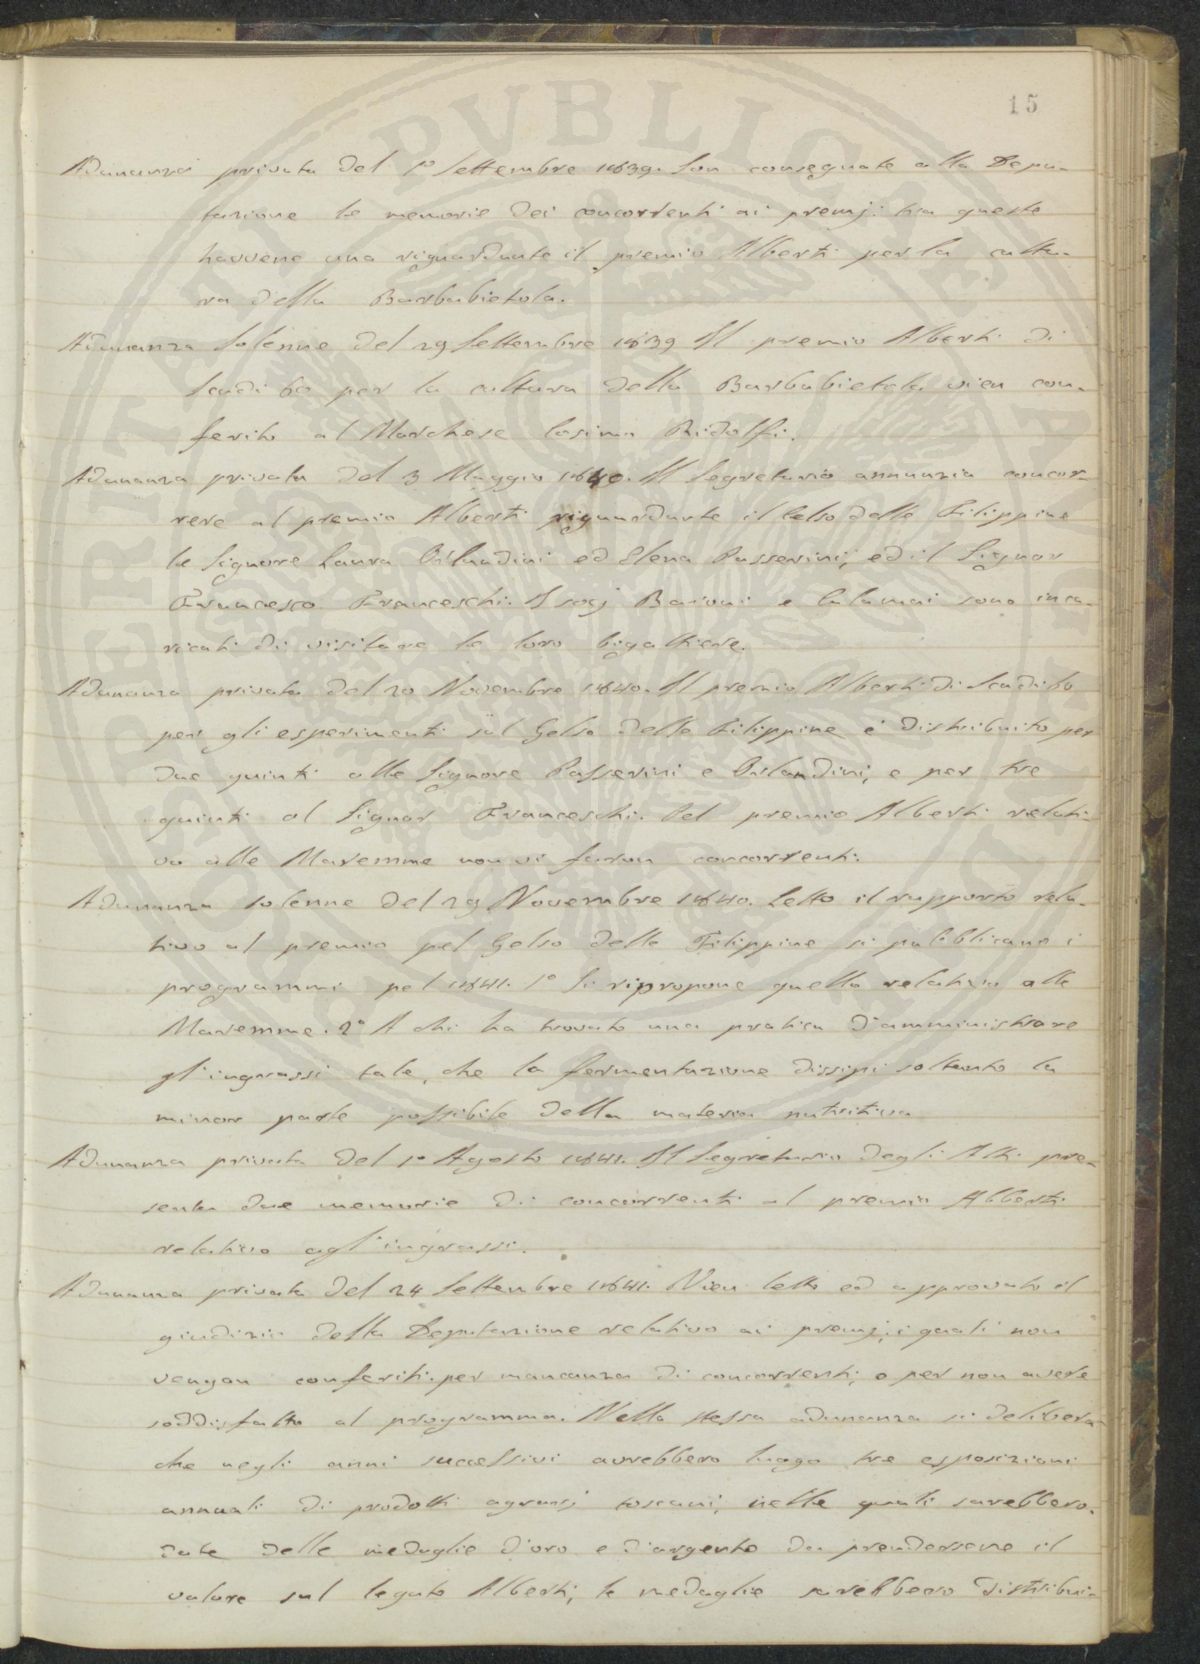 15
Adunanza privata del 1° Settembre 1839. Son consegnate alla Depu-
tazione le memorie dei concorrenti ai premj: tra queste
havvene una riguardante il premio Alberti per la cultu-
ra della Barbabietola.
Adunanza solenne del 29 Settembre 1839 Il premio Alberti di
Scudi 60 per la cultura della Barbabietola vien con-
ferito al Marchese Cosimo Ridolfi.
Adunanza privata del 3 Maggio 1840. Il Segretario annunzia concor-
rere al premio Alberti riguardante il Gelso delle Filippine
le Signore Laura Orlandini ed Elena Passerini, ed il Signor
Francesco Franceschi. I socj Baroni e Calamai sono inca-
ricati di visitare le loro bigattiere.
Adunanza privata del 20 Novembre 1840. Il premio Alberti di Scudi 60
per gli esperimenti sul Gelso delle Filippine è distribuito per
due quinti alle Signore Passerini e Orlandini, e per tre
quinti al Signor Franceschi. Pel premio Alberti relati-
vo alle Maremme non vi furon concorrenti.
Adunanza solenne del 29 Novembre 1840. Letto il rapporto rela-
tivo al premio pel Gelso delle Filippine si pubblicano i
programmi pel 1841. 1° Si ripropone quello relativo alle
Maremme. 2° A chi ha trovato una pratica d'amministrare
gl'ingrassi tale, che la fermentazione dissipi soltanto la
minor parte possibile della materia nutritiva
Adunanza privata del 1° Agosto 1841. Il Segretario degli Atti pre-
senta due memorie di concorrenti al premio Alberti
relativo agl'ingrassi.
Adunanza privata del 24 Settembre 1841. Vien letto ed approvato il
giudizio della Deputazione relativo ai premj, i quali non
vengon conferiti per mancanza di concorrenti, o per non avere
soddisfatto al programma. Nella stessa adunanza si delibera
che negli anni successivi avrebbero luogo tre esposizioni
annuali di prodotti agrarj toscani, nelle quali sarebbero
date delle medaglie d'oro e d'argento da prendersene il
valore sul legato Alberti; le medaglie sarebbero distribui-